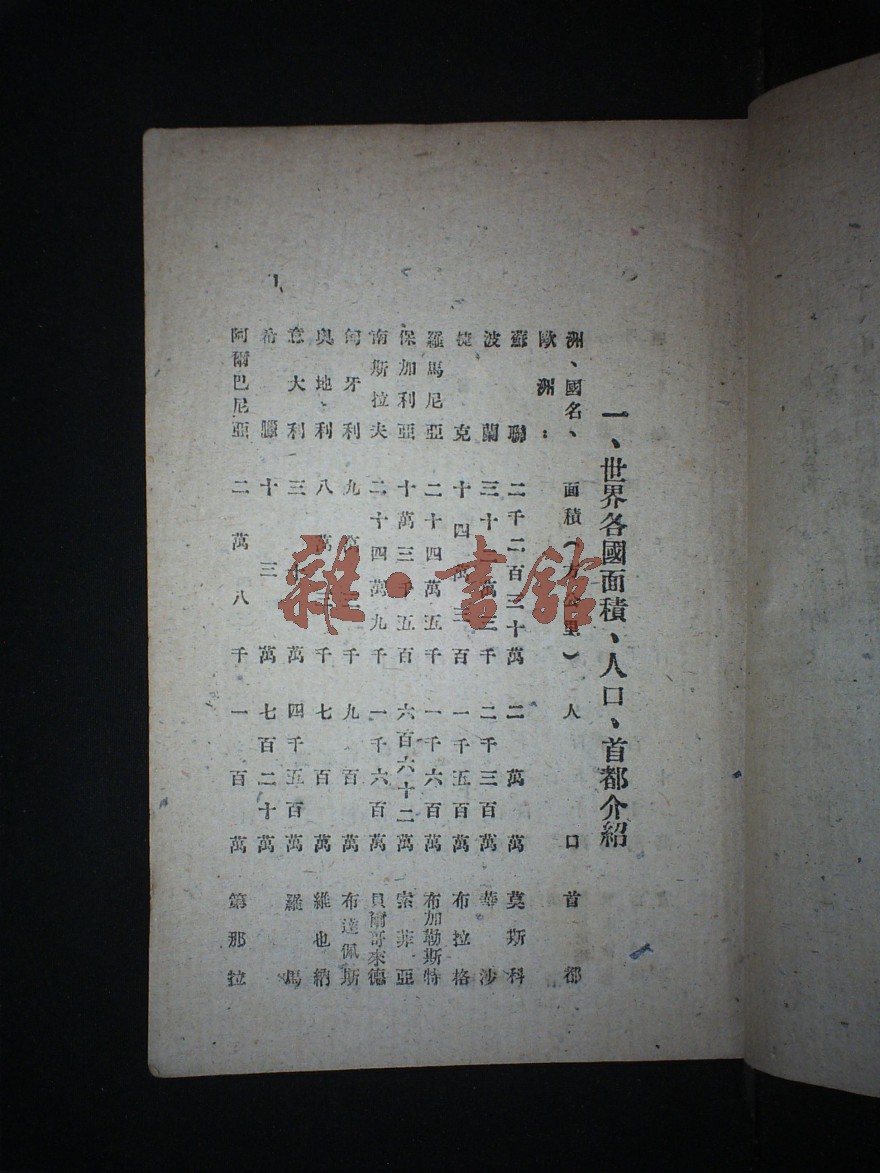 一、世界各國面積、人口、首都介紹
洲、國名、 面積(方公里) 人口 首都
歐洲:
蘇聯 二千二百三十萬 二萬萬 莫斯科
波蘭 三十一萬三千 二千三百萬 華沙
捷克 十四萬三百 一千五百萬 布拉格
羅馬尼亞 二十四萬五千 一千六百萬 布加勒斯特
保加利亞 十萬三千五百 六百六十二萬 索菲亞
南斯拉夫 二十四萬九千 一千六百萬 貝爾哥來德
匈牙利 九萬三千 九百萬 布達佩斯
奥地利 八萬三千 七百萬 維也納
意大利 三十萬 四千五百萬 羅馬
希臘 十三萬 七百二十萬
阿爾巴尼亞 二萬八千 一百萬 第那拉
1
雜·書館